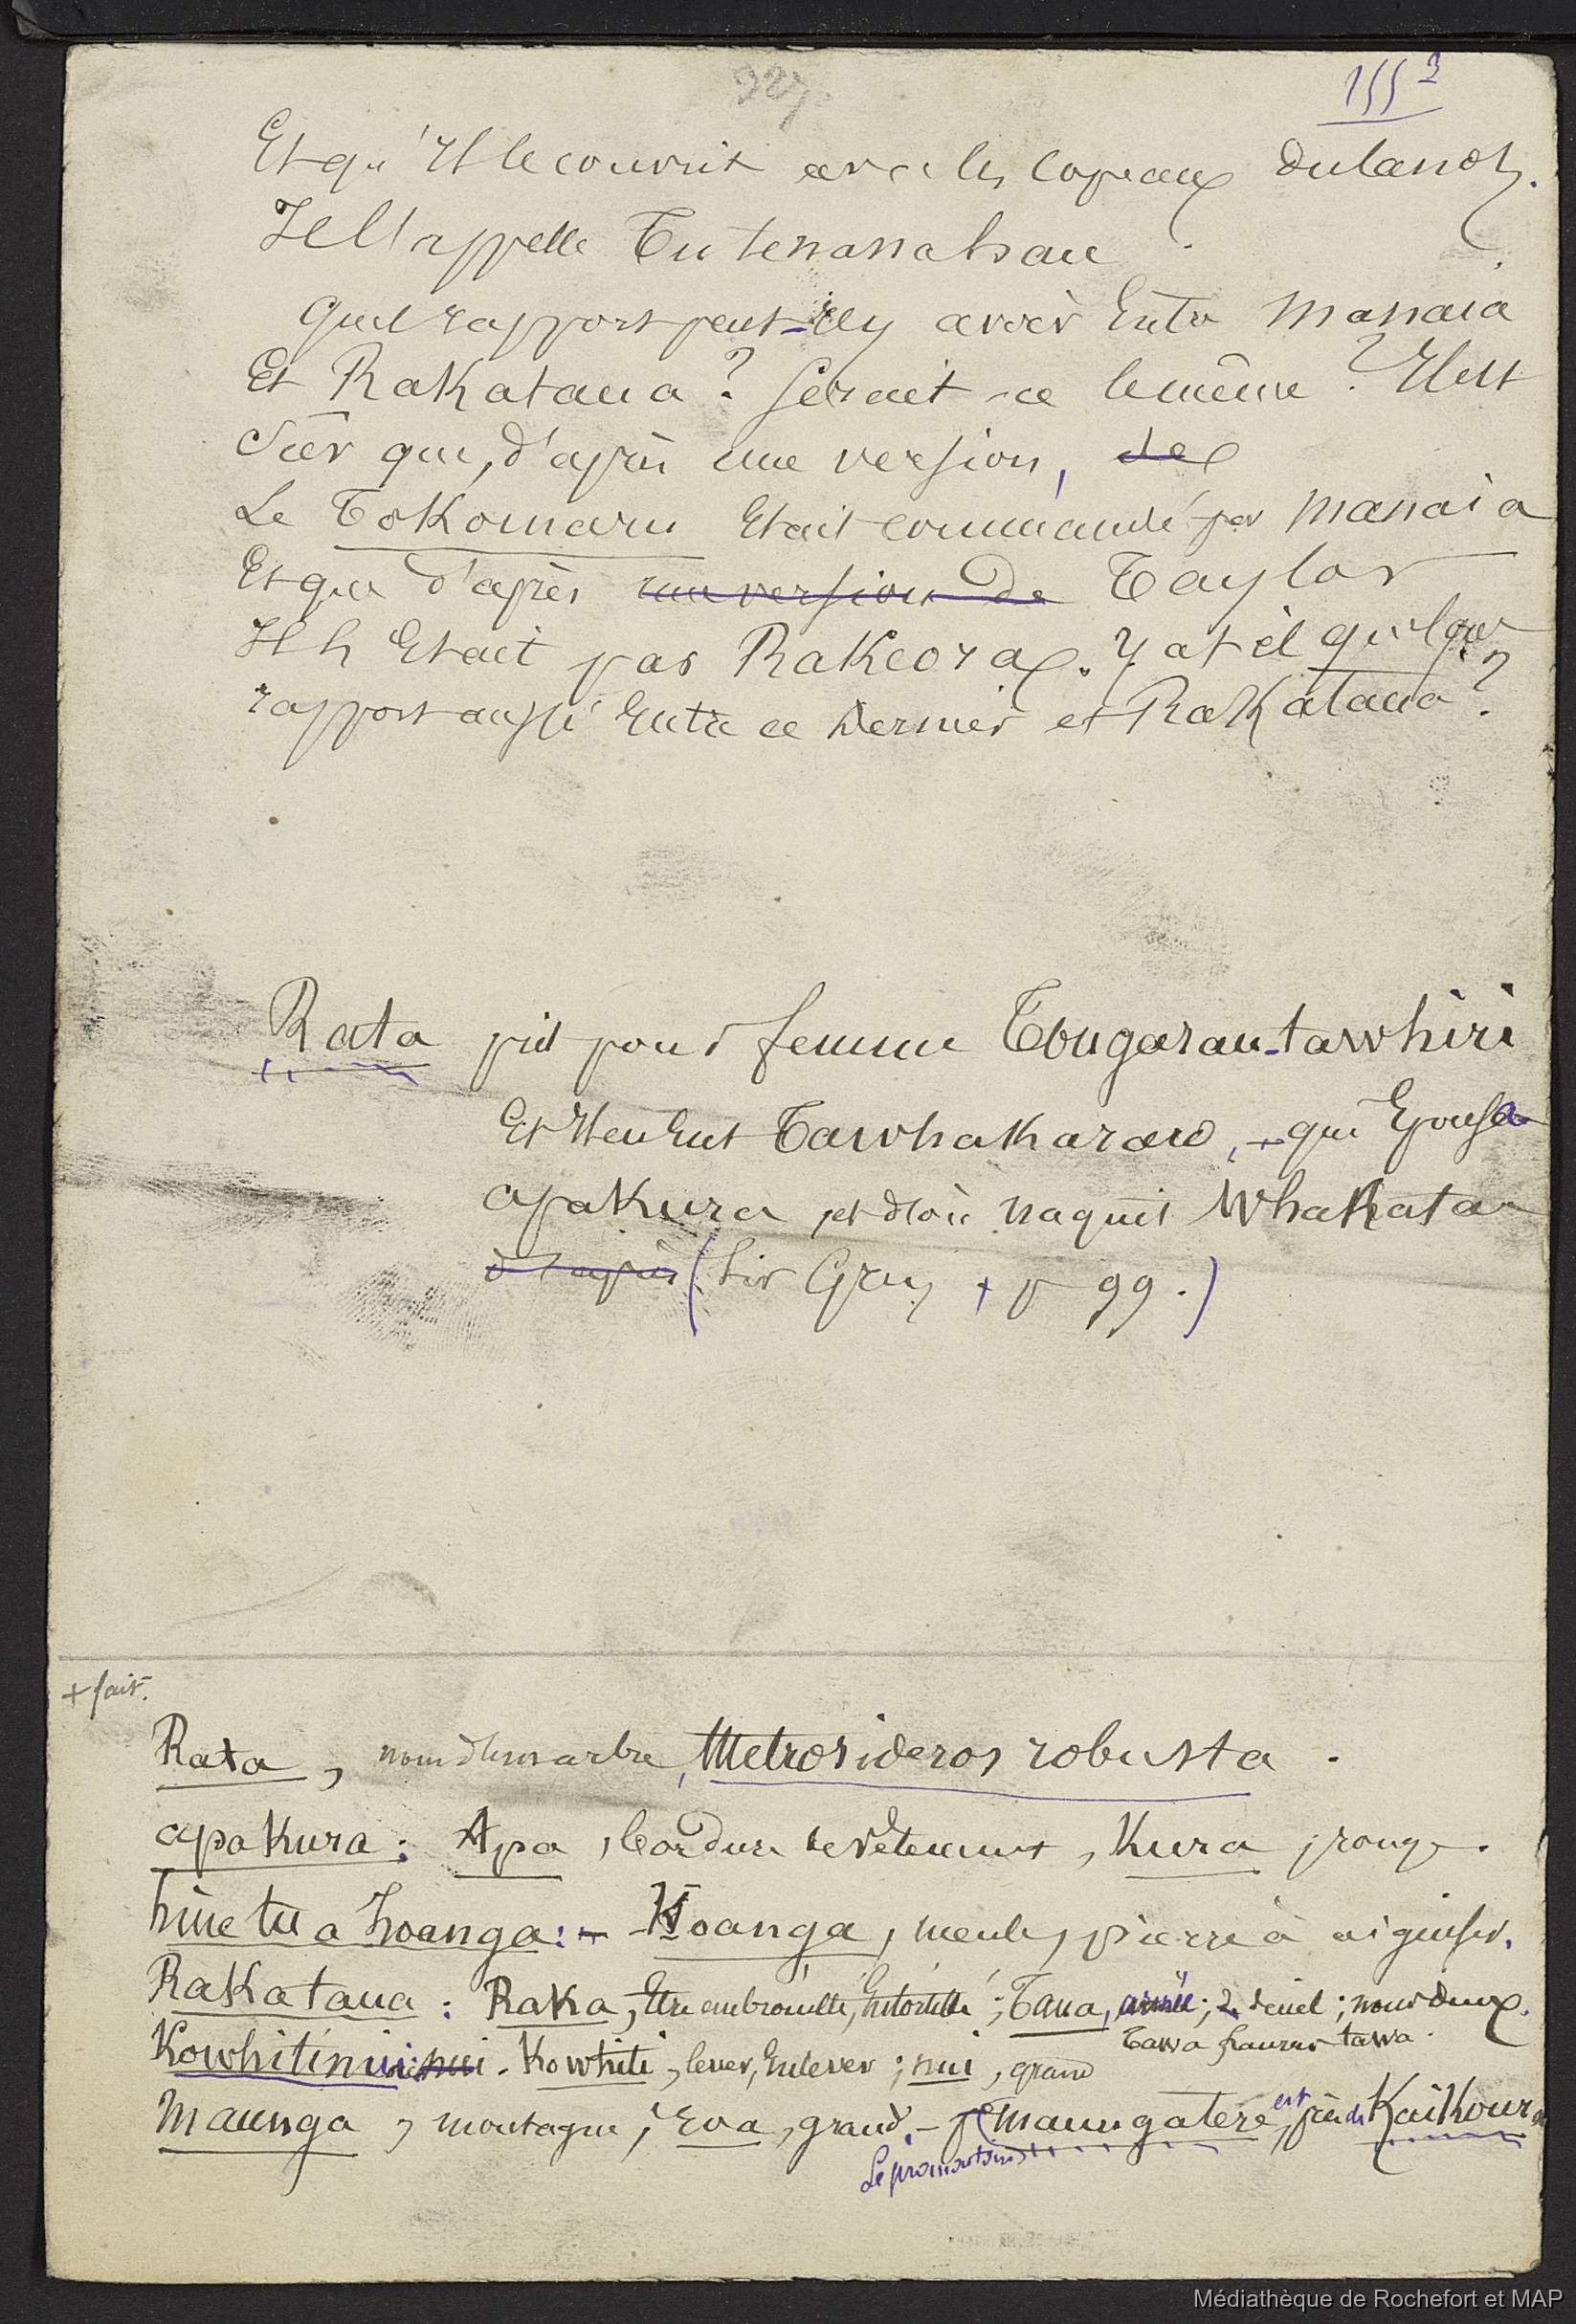 927
155 3
Et qu'il le couvrit avec les copeaux du canot.
Il l'appelle Tutenanahau.
Quel rapport peut-il y avoir entre Manaia
Et Rakataua ? Serait-ce le même ? Il est
Sûr que, d'après une version, de
Le Tokomaru Etait commandé par Manaia
Et que d'après une version de Taylor
Il l'Etait par Rakeora. Y at il quelque
rapport aussi Entre ce dernier et Rakataua ?
Rata prit pour femme Tongarau-tawhiri
Et Il en Eut Tawhakararo, qui Epousa
apakura et d'où naquit Whakatau
d'après (Sir Grey p 99.)
+ fait.
Rata, nom d'un arbre, Metrosideros robusta.
apakura : Apa, bordure de vêtement, Kura, rouge.
hine tu a hoanga : - Hoanga, meule, pierre à aiguiser.
Rakataua : Raka, Etre embrouillé, Entortillé ; Taua, armée ; 2 deuil ; nous deux.
Tawa prunus tawa.
Kowhitinui : nui - Kowhiti, lever, Enlever ; nui, grand
Maunga, montagne ; Roa, grand. - Maungatere est près de Kaikoura
Le promontoire
Médiathèque de Rochefort et MAP